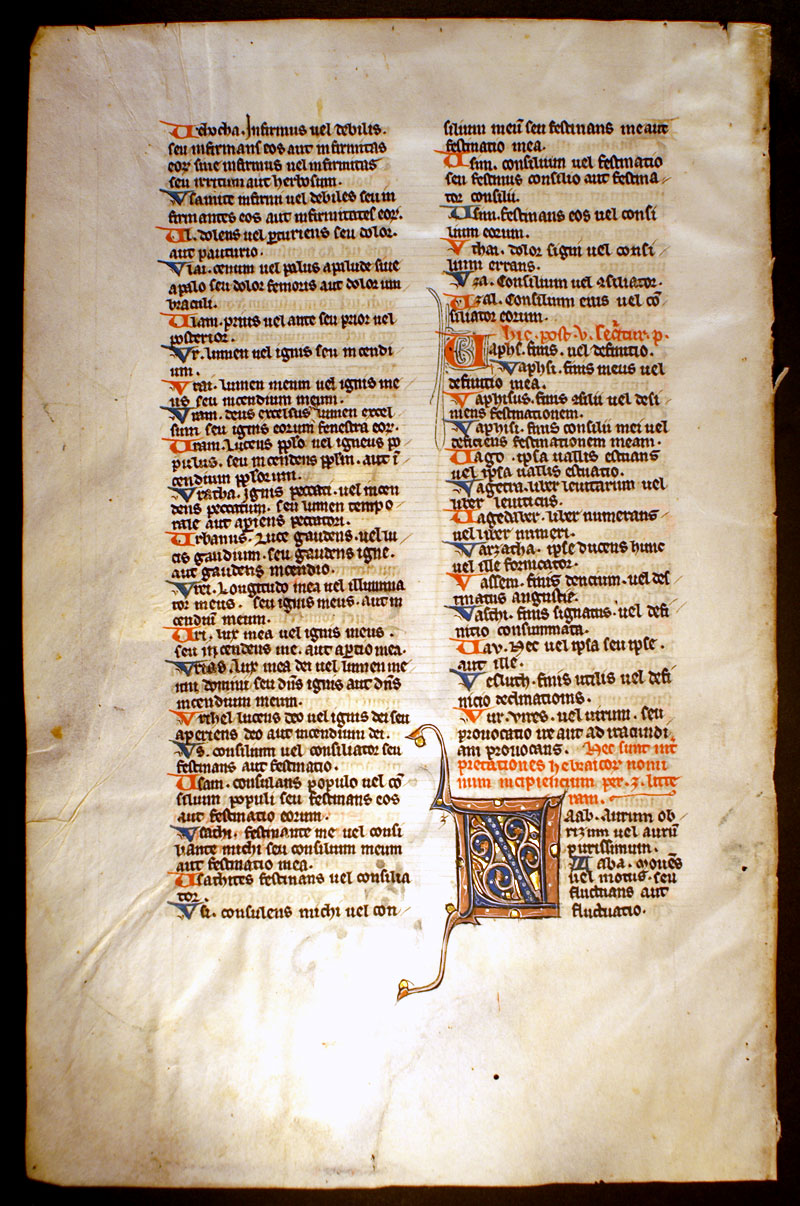 Infirmus uel debilis.
seu infirmans eos aut infirmitas
eor̄ siue infirmus uel infirmitas
seu irritum aut herbosum.
infirmi uel debiles seu in
firmantes eos aut infirmitates eor̄.
Ul. dolens uel ꝑturiens seu dolor.
aut parturio.
Vlai. cenum uel palus apalude siue
apalo seu dolor femoris aut dolor um
braculi.
Ulam. prius uel ante seu prior uel
posterior.
Vr. lumen uel ignis seu incendi
um.
Vrai. lumen meum uel ignis me
us seu incendium meum.
Vram. deus excelsus lumen excel
sum seu ignis eorum fenestra eor̄.
Uram. Lucens pp̄lo uel igneus po
pulus. seu incendens pp̄lm. aut ī
cendium pp̄lorum.
Vratha. Ignis peccati. uel incen
dens peccatum. seu lumen tempo
rale aut aꝑiens peccatori.
Urbanus. Luce gaudens. uel lu
cis gaudium. seu gaudens igne.
aut gaudens incendio.
Vrei. Longitudo mea uel illumina
tor meus. seu ignis meus. aut in
cendiū meum.
Uri. lux mea uel ignis meus.
seu incendens me. aut aꝑtio mea.
Vrias. lux mea dei uel lumen me
um domini seu dn̄s ignis aut dn̄s
incendium meum.
Vrihel lucens deo uel ignis dei seu
aperiens deo aut incendium dei.
Vs. consilium uel consiliator seu
festinans aut festinatio.
Usam. consulans populo uel cō
silium populi seu festinans eos
aut festinatio eorum.
Vsachi. festinante me uel consi
liante michi seu consilium meum
aut festinatio mea.
Usachites festinans uel consilia
tor.
Vsi. consulens michi uel con
silium meū seu festinans me aut
festinatio mea.
Usim. consilium uel festinatio
seu festinus consilio aut festina
tor consilii.
Usim. festinans eos uel consi
lium eorum.
Vthai. dolor signi uel consi
lium errans.
Vza. Consilium uel ꝯsiliator.
Uzal. Consilium eius uel cō
siliator eorum.
hic. post. v. seq̄tur. p.
Uaphs. finis. uel definitio.
Vaphsi. finis meus uel
definitio mea.
Vaphsius. finis ꝯsilii uel desi
niens festinationem.
Vaphisi. finis consilii mei uel
deficiens festinationem meam.
Uago. ipsa uallis estuans
uel ipsa uallis estuatio.
Vagetra. liber leuitarum uel
liber leuiticus.
Uagedaber. liber numerans
uel liber numeri.
Varzacha. ipse ducens hunc
uel ille fornicator.
Vassem. finis dentium. uel des
tinatus angustie.
Vaschi. finis signatus. uel defi
nitio consummata.
Uau. Hec uel ipsa seu ipse.
aut ille.
Vesluch. finis utilis uel defi
nicio declinationis.
Vur. uires. uel uirum. seu
prouocatio ire aut ad iracundi
am prouocans. Hec sunt int̄
pretationes hebraicor̄ nomi
num incipientium per. z. litte
ram.
Zaab. Aurum ob
rizum uel aurū
purissimum.
Zaba. Mouēs
uel motus. seu
fluctuans aut
fluctuatio.